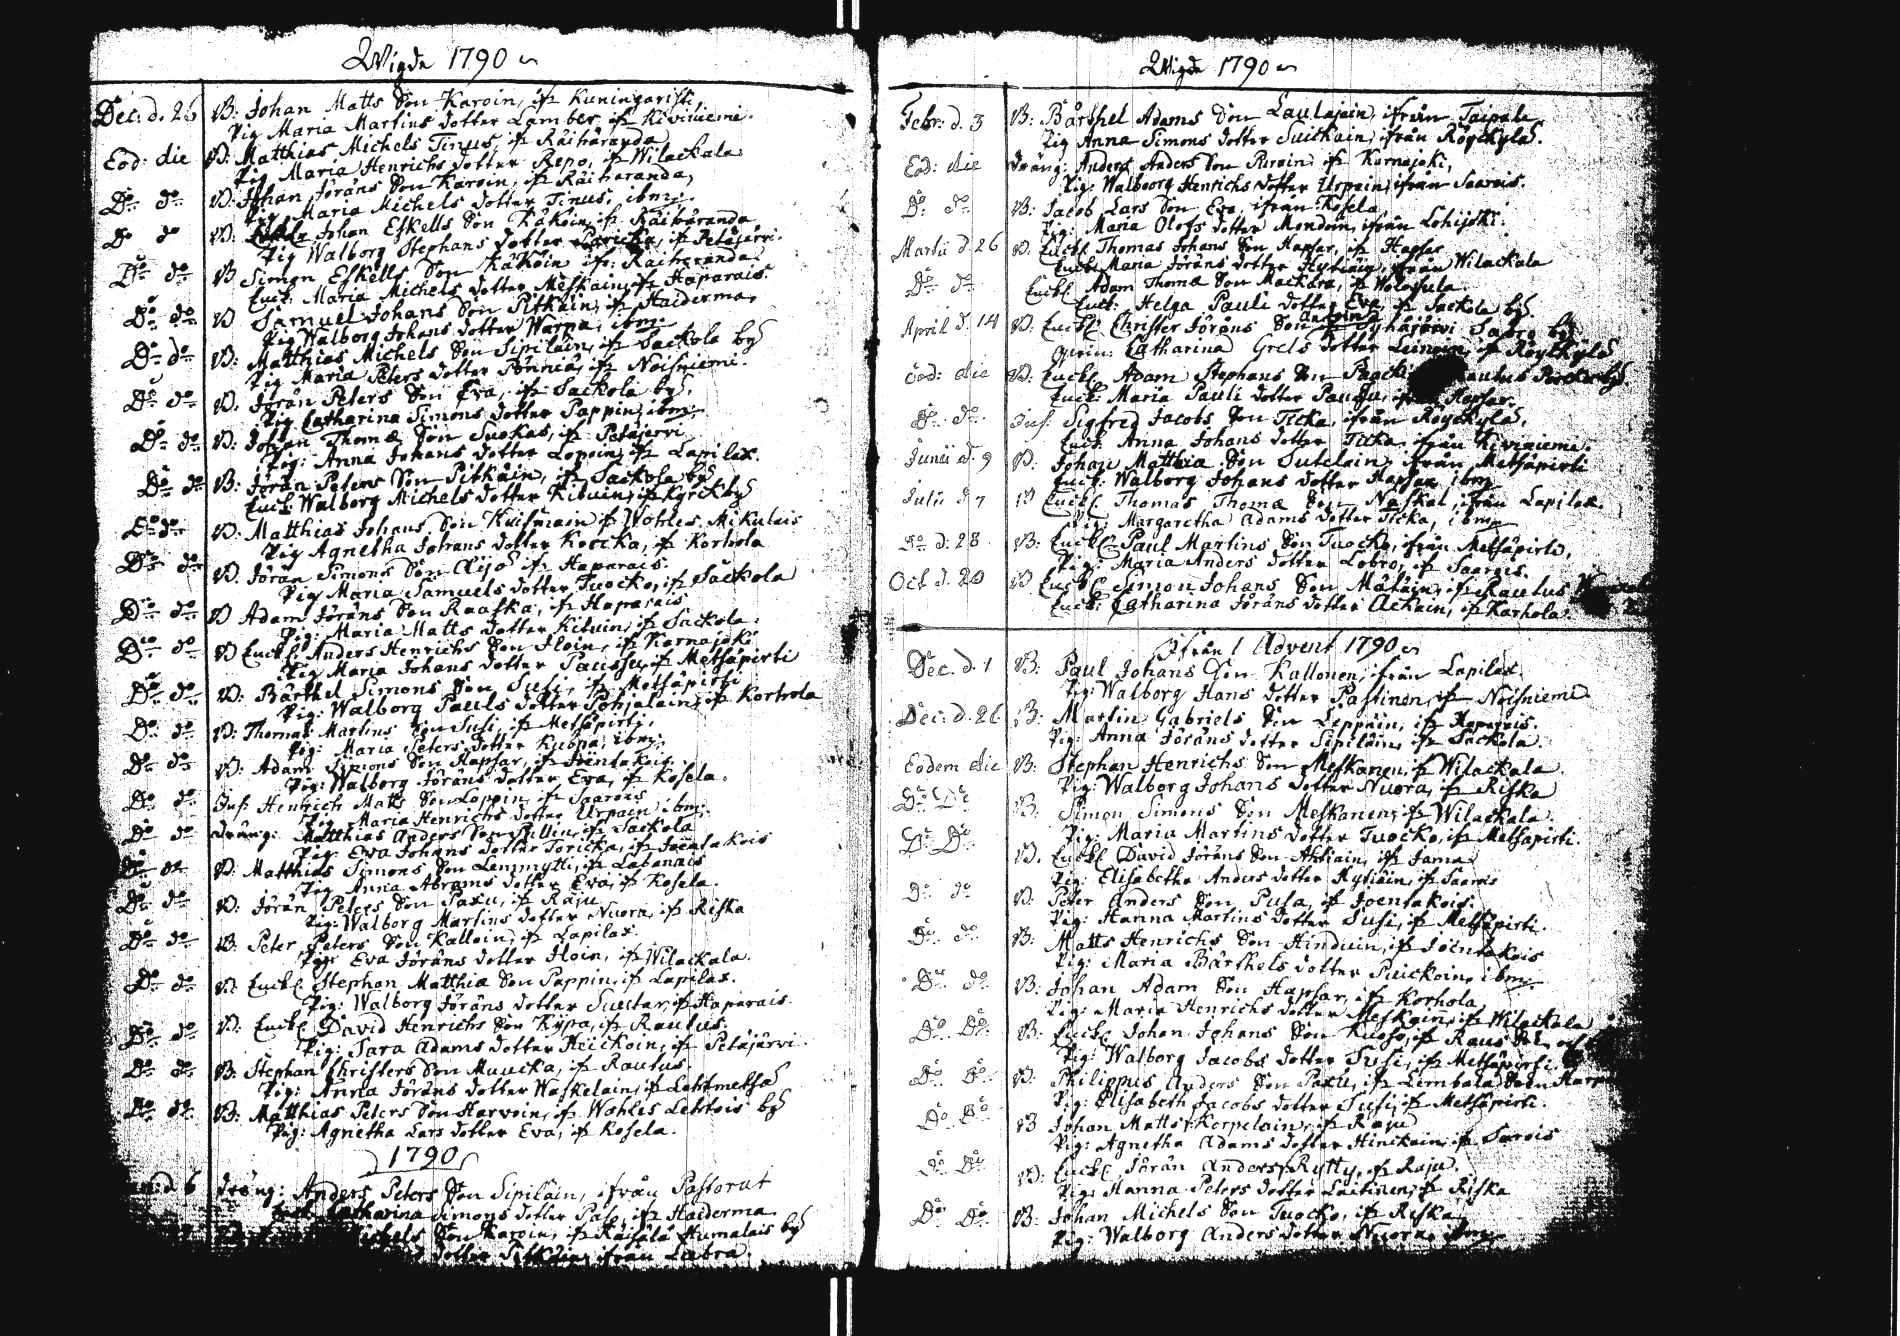 Wigde 1790
Dec: d. 26 B: Johan Matts Son Karoin, if Kuningaristi,
Pig Maria Martins dotter Lamber, if Kiviniemi.
Eod: die B: Matthias Michels Tinus, if Räihäranda
Pig Maria Henrichs dotter Repo, if Wilackala
Do do B: Johan Jöräns Son Karoin, if Räiharanda,
Pig Maria Michels dotter Tinus, ibm:
Do do B: Johan Eskells Son Käköin, if Räihäranda
Pig Walborg Stephans dotter if Petäjärvi.
Do do B Simon Eskells Son Käköin if: Raiharanda
Enck: Maria Michels dotter Meskain, if Haparais.
Do do B Samuel Johans Son Pitkäin, if Haiderma,
Pig Walborg Johans dotter Warpa, ibm:
Do do B: Matthias Michels Son Sipiläin, if Sackola by
Pig Maria Peters dotter Pönniä, if Noisniemi.
Do do B. Jöran Peters Son Eva, if Sackola by,
Pig Catharina Simons dotter Pappin, ibm:
Do do B: Johan Thomæ Son Suokas, if Petäjervi
Pig: Anna Johans dotter Lopoin, if Lapilax.
Do do B: Jöran Peters Son Pitkäin, if Sackola by
Enck Walborg Michels dotter Kiduin, if Kyrckby
Do do B. Matthias Johans Son Kuismain if Wohles Mikulais
Pig Agnetha Johans dotter Koocka, if Korhola
Do do B. Jöran Simons Son Äijö if Haparais.
Pig Maria Samuels dotter Tuocko, if Sackola
Do do B Adam Jöräns Son Raaska, if Haparais
Pig: Maria Matts dotter Kiduin, if Sackola.
Do do B Enckl: Anders Henrichs Son Iloin, if Karnajoki
Pig Maria Johans dotter Paussu, if Metsäpirti
Do do B: Bärthel Simons Son Susi, if Metsäpirti
Pig: Walborg Pauls dotter Pohjalain, if Korhola
Do do B: Thomas Martins Son Susi, if Metsäpirti,
Pig: Maria Peters dotter Kuopa, ibm:
Do do B: Adam Simons Son Hapsar, if Joentakois.
Pig: Walborg Jöräns dotter Eva, if Kosela.
Do do Inh: Henrich Matts Son Loppin, if Saarois
Pig. Maria Henrichs dotter Urpain ibm:
Do do dräng: Matthias Anders Son Pullin, if Sackola
Pig: Eva Johans dotter Toricka, if Joentakois
B. Matthias Simons Son Lemmytti, if Labanais
Pig Anna Abrams dotter Eva, if Kosela.
Do do B: Jörän Peters Son Paxu, if Raju
Pig: Walborg Martins dotter Nuora, if Riska
Do do B: Peter Peters Son Kalloin, if Lapilax.
Pig: Eva Jöräns dotter Iloin, if Wilackala.
Do do B. Enckl. Stephan Matthiæ Son Pappin, if Lapilax.
Pig: Walborg Jöräns dotter Suntar, if Haparais.
Do do B: Enckl David Henrichs Son Kypa, if Rautus.
Pig: Sara Adams dotter Heickoin, if Petäjärvi.
Do do B: Stephan Christers Son Muucka, if Rautus.
Pig: Anna Jöräns dotter Waskelain, if Lohtmetsä
Do do B: Matthias Peters Son Harvoin, if Wohles Lehtois by
Pig: Agnetha Lars dotter Eva, if Kosela.
1790
d 6 dräng: Anders Peters Son Sipiläin, ifrån Pastorat
Catharina Simons dotter if Haiderma
Michels Son Karoin, if Räisälä Humalais by
dotter Pitkäin, ifrån Liabra
Wigde 1790
Febr: d. 3 B: Bärthel Adams Son Laulajain, ifrån Taipale
Pig Anna Simons dotter Suickain, ifrån Röyckylä.
Eod: die dräng: Anders Anders Son Puroin if Karnajoki,
Pig: Walborg Henrichs dotter Urpain, ifrån Saarois.
Do do B: Jacob Lars Son Eva, ifrån Kosela
Pig: Maria Olofs dotter Mondoin, ifrån Lohijoki.
Martii d. 26 B. Enckl Thomas Johans Son Hapsar, if Hapsar
Enck: Maria Jöräns dotter Hytiäin, ifrån Wilackala
Do do Enckl. Adam Thomæ Son Mackara, if Wolosula.
Enck: Helga Pauli dotter Eva, if Sackola by.
April d. 14 B: Enckl: Christer Jöräns Son if Pyhäjärvi Sabro by
qvin: Catharina Grels dotter Leinoin, if Röyckylä
Eod: die B: Enckl. Adam Stephans Son
Enck: Maria Pauli dotter Paussu, ifrån Hapsar.
Do do Inh: Sigfred Jacobs Son Ticka, ifrån Röyckylä,
Enck: Anna Johans dotter Ticka, ifrån Kiviniemi.
Junii d. 9 B: Johan Matthiæ Son Sutelain, ifrån Metsäpirti
Enck: Walborg Johans dotter Hapsar ibm
Julii d. 7 B Enckl. Thomas Thomæ Son Naskal, ifrån Lapilax.
Pig: Margaretha Adams dotter Ticka, ibm
Do d: 28 B: Enckl Paul Martins Son Tuocko, ifrån Metsäpirti,
Pig: Maria Anders dotter Lobro, if Saarois.
Oct d. 20 B Enckl Simon Johans Son Mätäin, if Rautus
Enck: Catharina Jöräns dotter Achain, if Karhola.
Ifrån 1 Advent 1790
Dec. d. 1 B: Paul Johans Son Kallonen, ifrån Lapilax
Pig: Walborg Hans dotter Pastinen, if Noisniemi.
Dec: d. 26 B: Martin Gabriels Son Leppäin, if Haparais.
Pig: Anna Jöräns dotter Sipiläin, if Sackola.
Eodem die B: Stephan Henrichs Son Meskanen, if Wilackala.
Pig: Walborg Johans dotter Nuora, if Riska
Do Do B. Simon Simons Son Meskanen, if Wilackala.
Pig: Maria Martins dotter Tuocko, if Metsäpirti.
Do Do B. Enckl David Jöräns Son Ahtiain, if Jama
Pig: Elisabetha Anders dotter Hytiäin, if Saarois
Do do B: Peter Anders Son Pusa, if Joentakois.
Pig: Hanna Martins dotter Susi, if Metsäpirti.
Do do B: Matts Henrichs Son Hinduin, if Joentakois
Pig: Maria Bärthels dotter Puickoin, ibm:
Do do B: Johan Adam Son Hapsar, if Korhola
Pig: Maria Henrichs dotter Meskain, if Wilackala
Do Do B: Enckl Johan Johans Son Kuoso, if Raus
Pig: Walborg Jacobs dotter Susi, if Metsäpirti
Do Do B: Philippus Anders Son Paxu, if Lembala
Pig: Elisabeth Jacobs dotter Susi, if Metsäpirti.
Do Do B Johan Matts Korpelain, if Raju
Pig: Agnetha Adams dotter Hinckain, if Sarois
Do Do B: Enckl Jörän Anders Rytty, if Raju.
Pig: Hanna Peters dotter Laitinen, if Riska
Do Do B: Johan Michels Son Tuocko, if Riska
Pig: Walborg Anders dotter Nuora, ibm